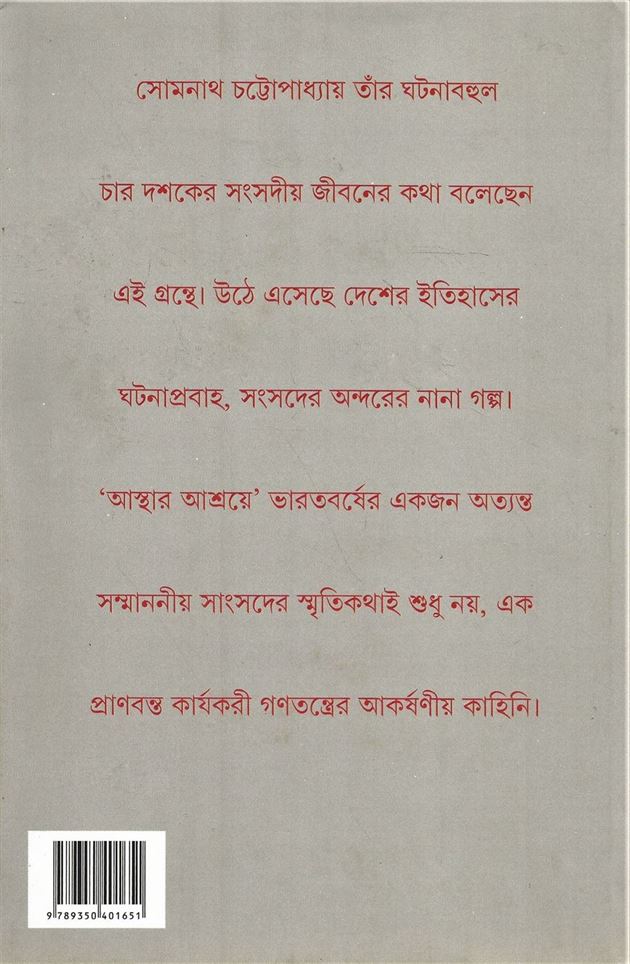 সোমনাথ চট্টোপাধ্যায় তাঁর ঘটনাবহুল
চার দশকের সংসদীয় জীবনের কথা বলেছেন
এই গ্রন্থে। উঠে এসেছে দেশের ইতিহাসের
ঘটনাপ্রবাহ, সংসদের অন্দরের নানা গল্প।
‘আস্থার আশ্রয়ে’ ভারতবর্ষের একজন অত্যন্ত
সম্মাননীয় সাংসদের স্মৃতিকথাই শুধু নয়, এক
প্রাণবন্ত কার্যকরী গণতন্ত্রের আকর্ষণীয় কাহিনি।
9 789350 401651